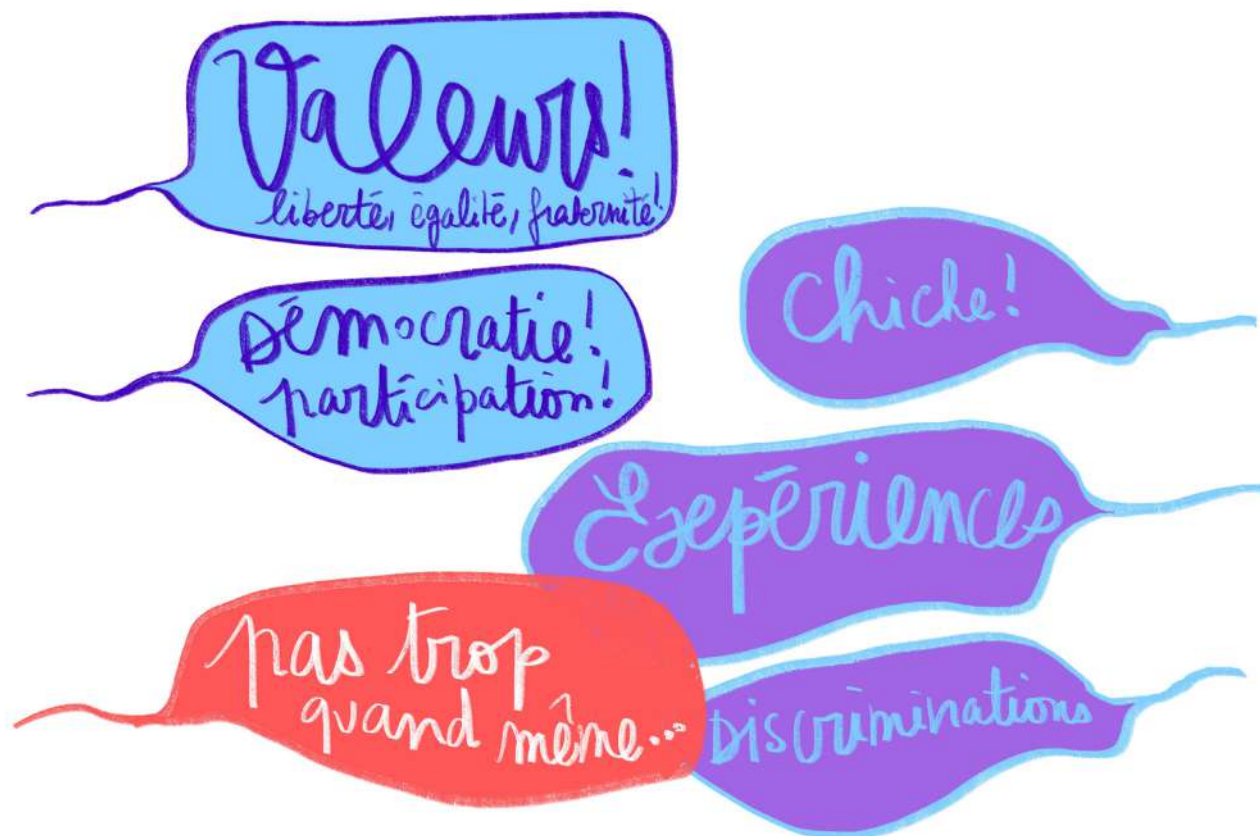 Valeurs!
liberté, égalité, fraternité!
Démocratie!
participation!
Chiche!
Expériences
pas trop
quand même...
Discriminations